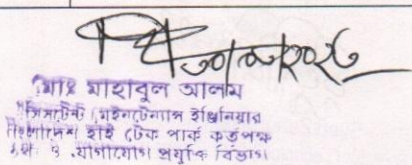 মোঃ মাহাবুল আলম
এসিসটেন্ট মেইনটেন্যান্স ইঞ্জিনিয়ার
বাংলাদেশ হাই টেক পার্ক কর্তৃপক্ষ
তথ্য ও যোগাযোগ প্রযুক্তি বিভাগ